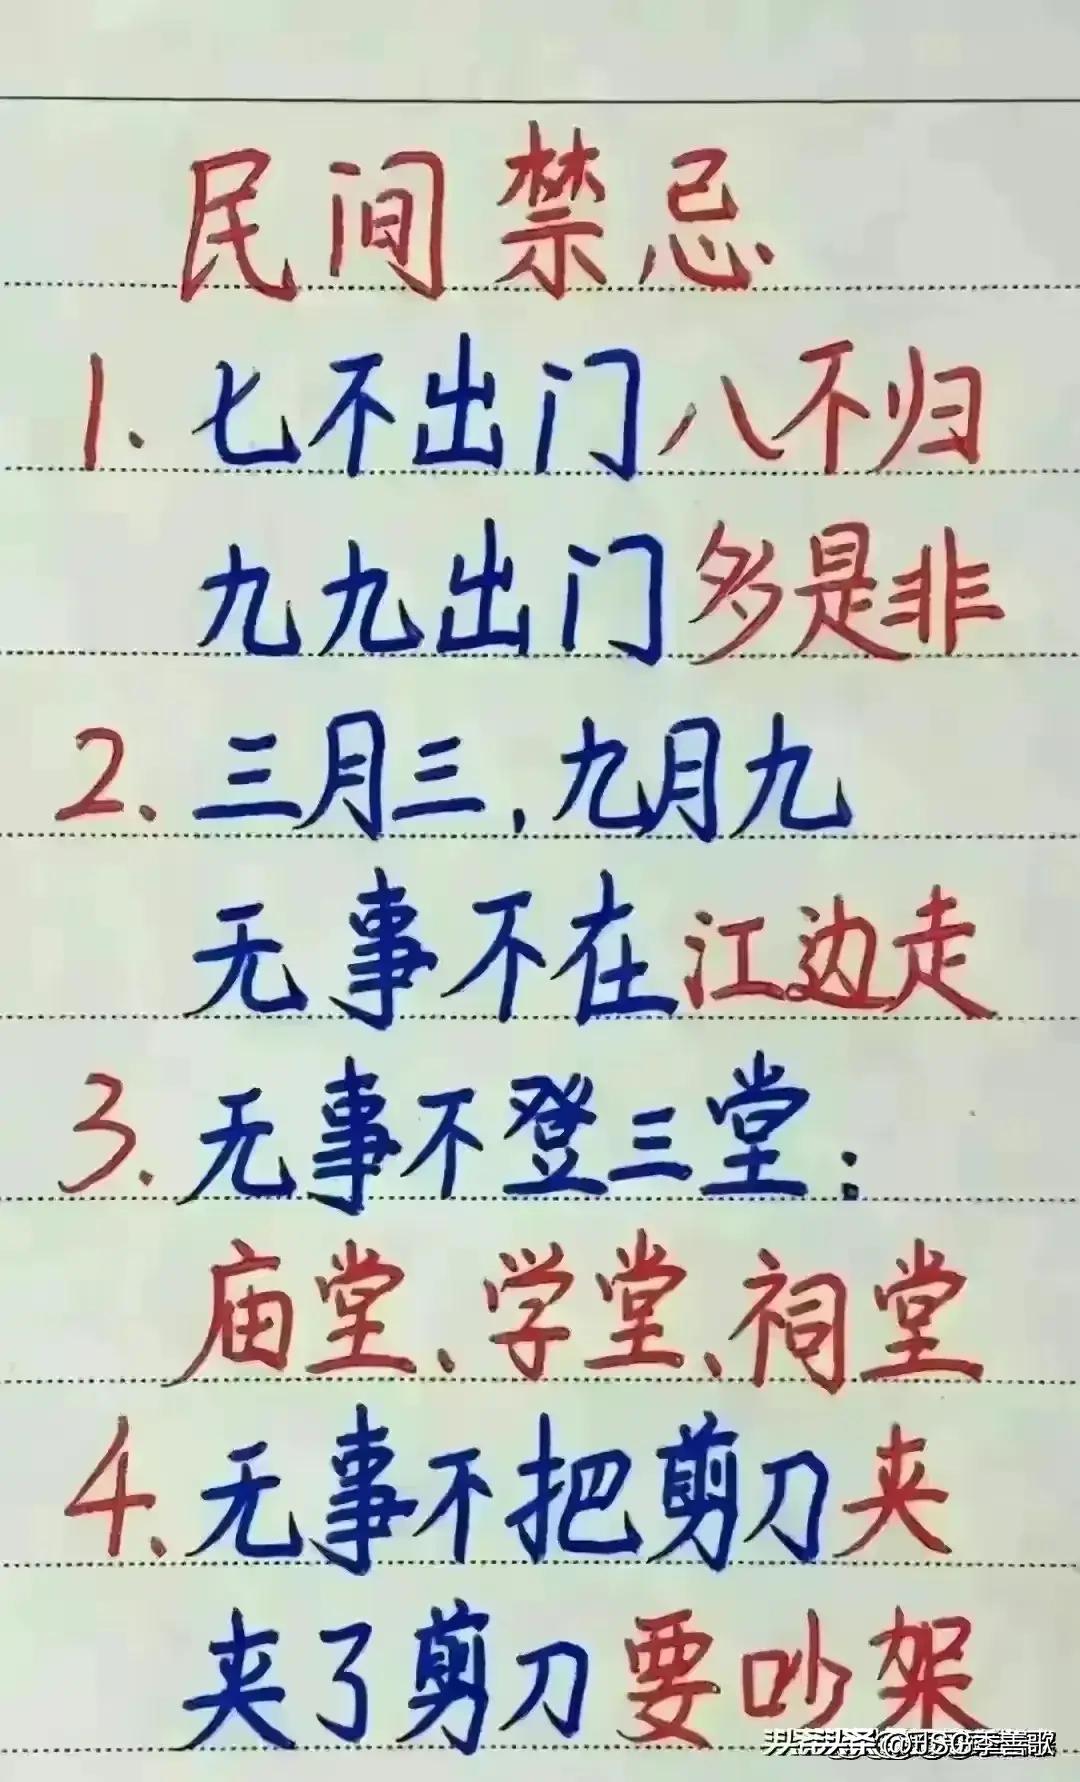 民间禁忌
1. 七不出门八不归
九九出门多是非
2. 三月三，九月九
无事不在江边走
3. 无事不登三堂：
庙堂、学堂、祠堂
4. 无事不把剪刀夹
夹了剪刀要吵架
头条 @JSG季善歌